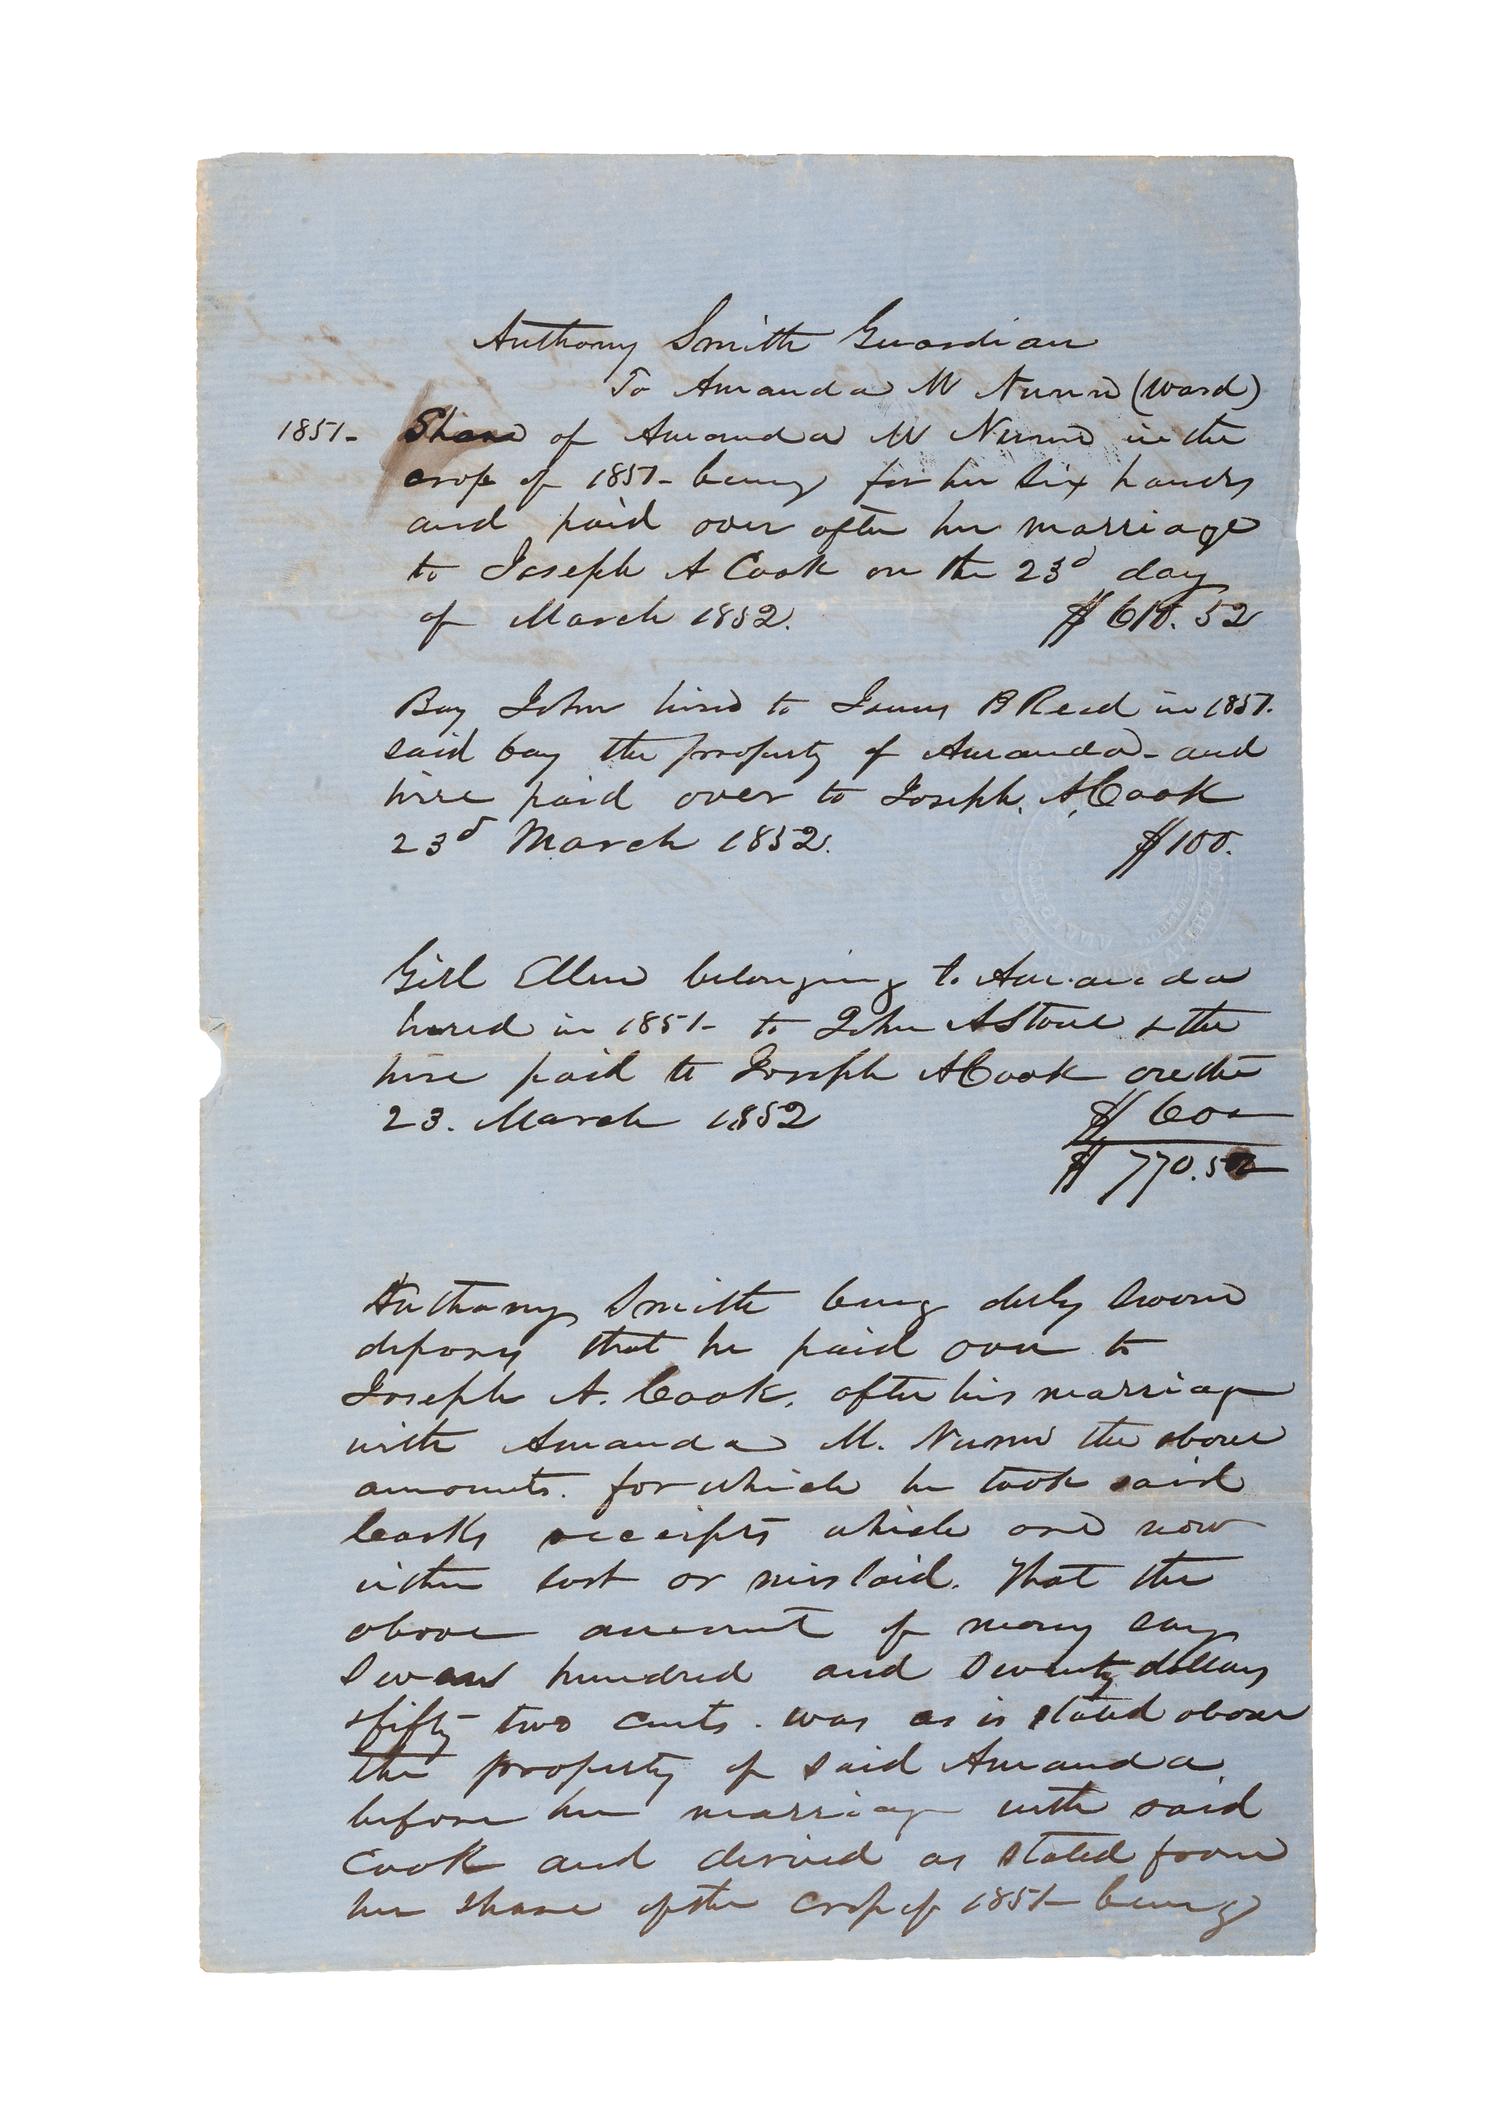 Anthony Smith Guardian
To Amanda M Nunn (Ward)
1851- Share of Amanda M Nunn in the
crop of 1851- being for her six hands
and paid over after her marriage
to Joseph A Cook on the 23d day
of March 1852. $610.52
Boy John hired to James B Reed in 1851.
said boy the property of Amanda - and
hire paid over to Joseph. A Cook
23d March 1852. $100.
Girl Ellen belonging to Amanda
hired in 1851- to John A Stone & the
hire paid to Joseph A Cook on the
23. March 1852 $60
$770.52
Anthony Smith being duly sworn
deposes that he paid over to
Joseph A. Cook. after his marriage
with Amanda M. Nunn the above
amounts. for which he took said
Cooks receipts which are now
either lost or mislaid. That the
above amount of money say
Seven hundred and Seventy dollars
& fifty two cents. was as is stated above
the property of said Amanda
before her marriage with said
Cook and derived as stated from
her share of the crop of 1851- being